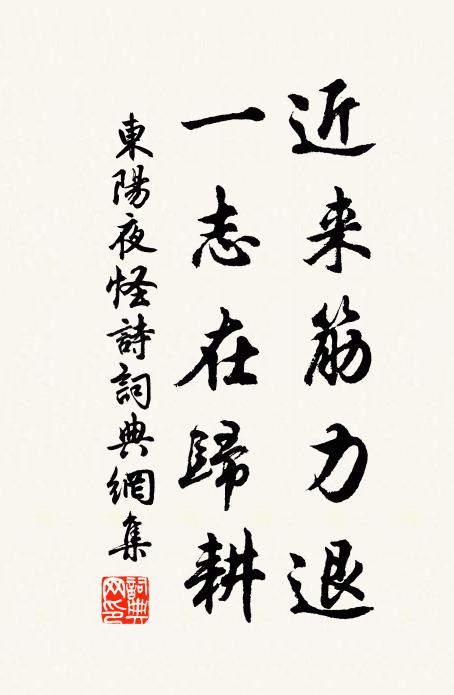 近来筋力退
一志在歸耕
東陽夜怪詩詞典網集
詞典網印